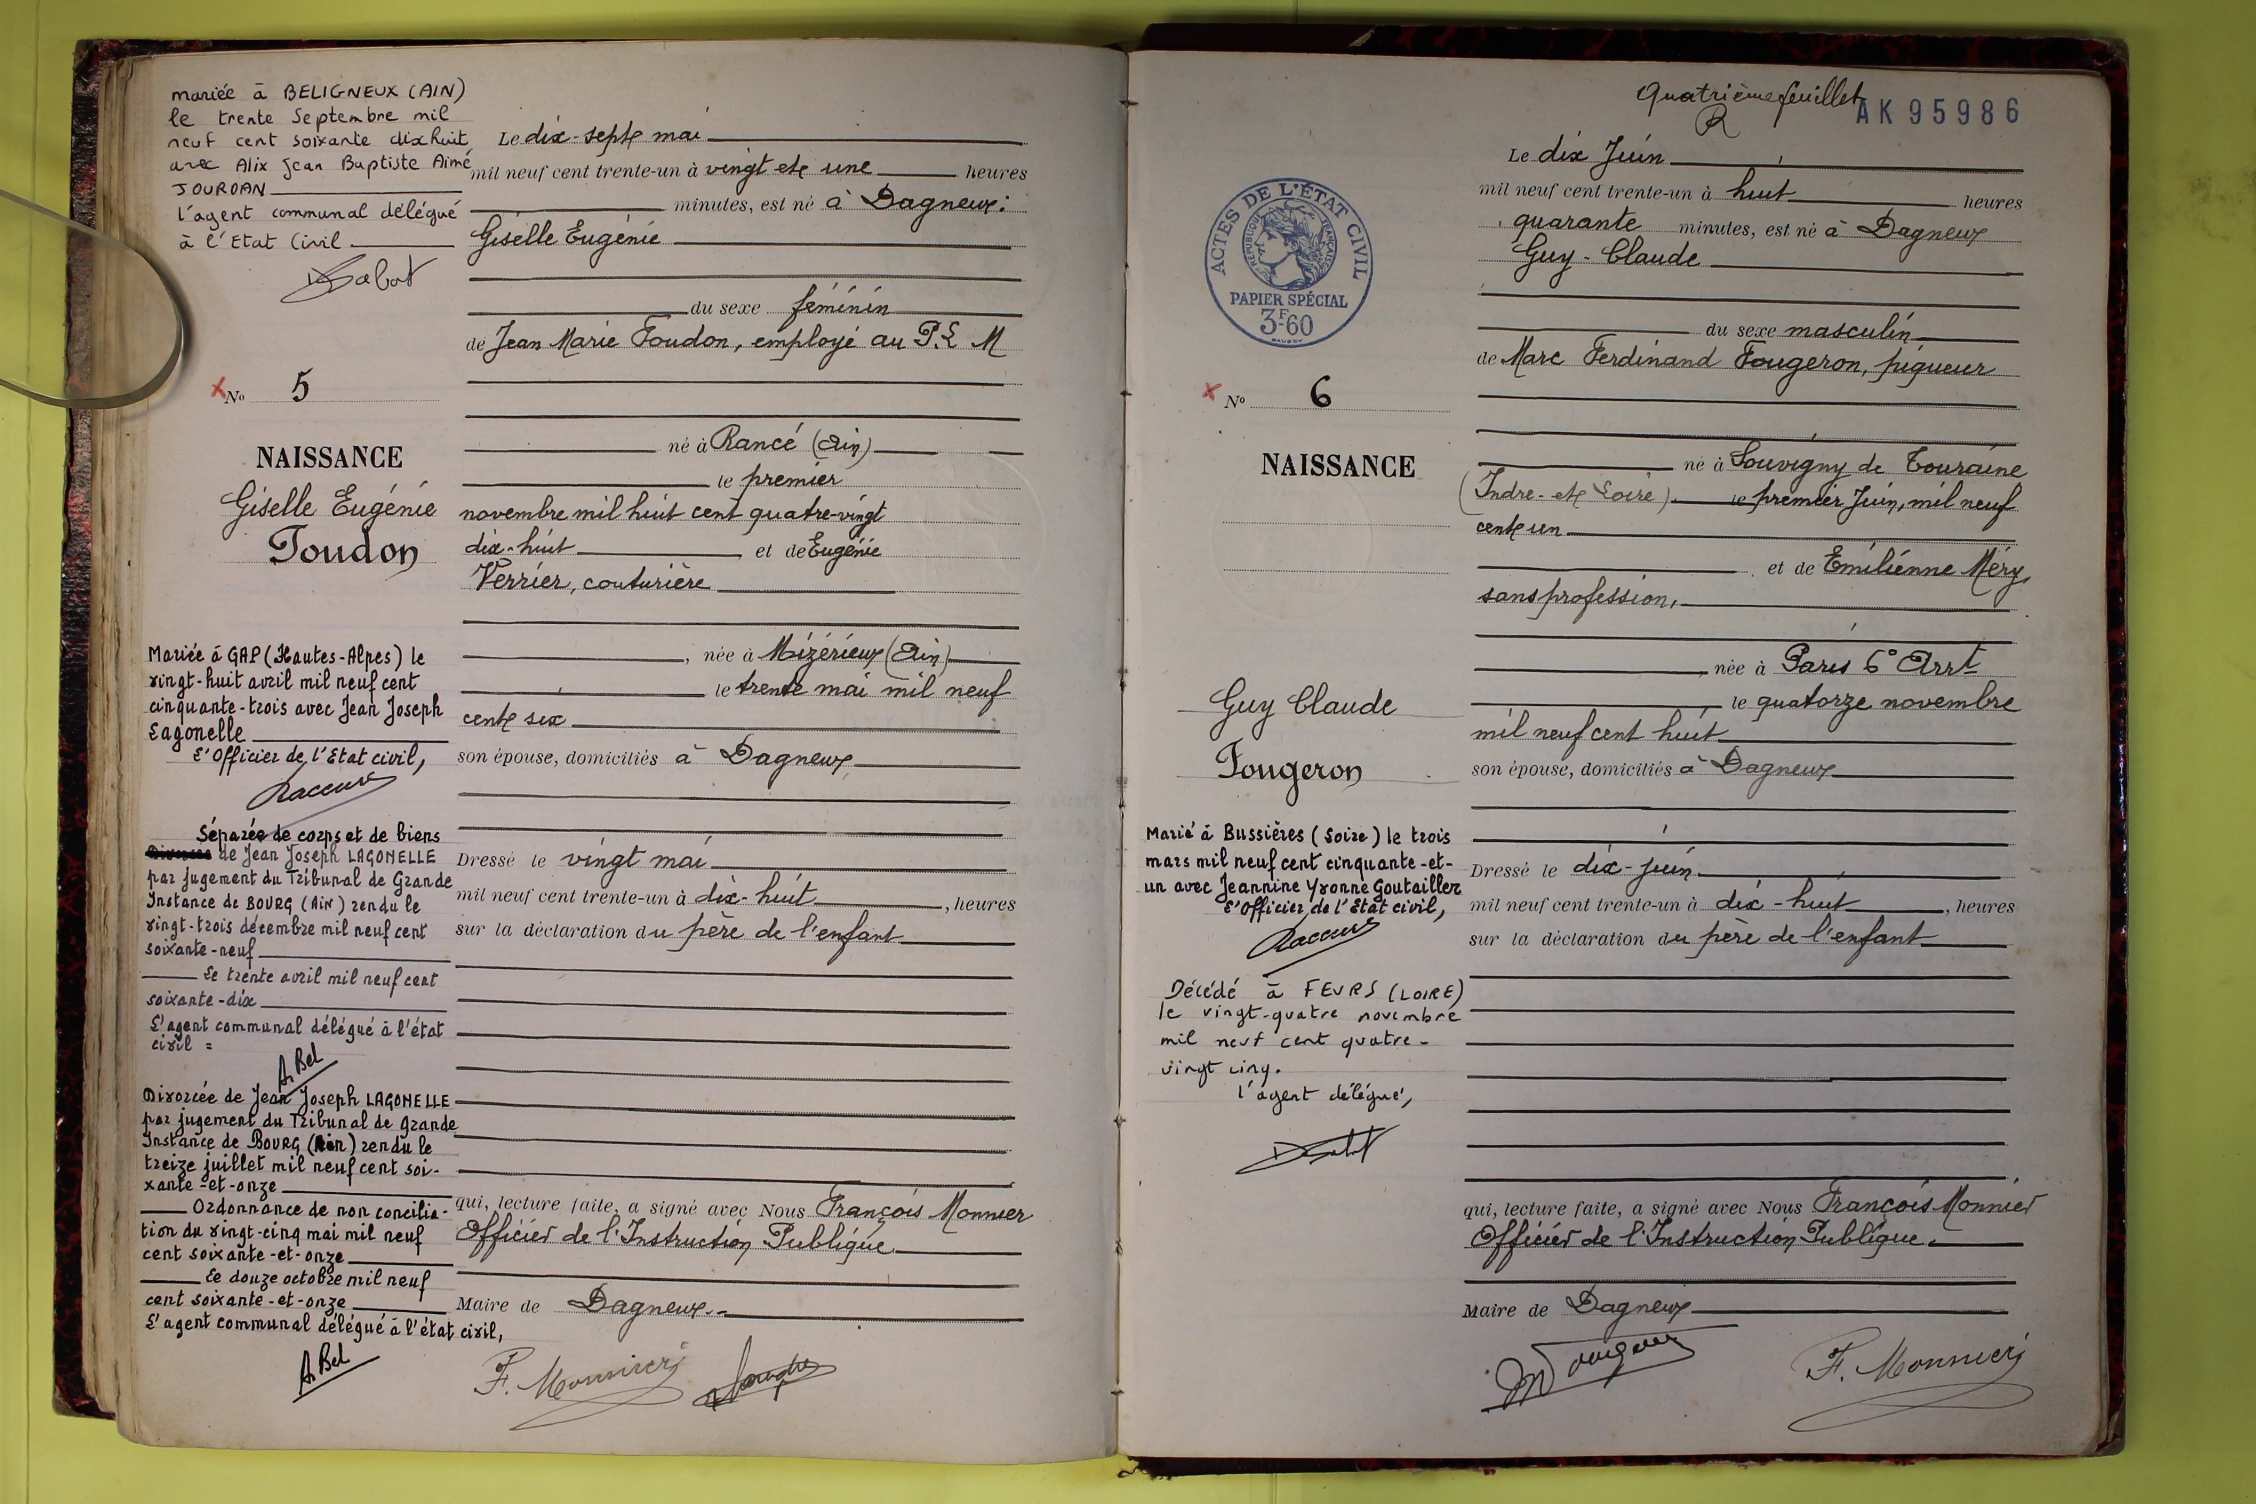 mariée à BELIGNEUX (AIN)
le trente Septembre mil
neuf cent soixante dix huit
avec Alix Jean Baptiste Aimé
JOURDAN
l'agent communal délégué
à l'Etat Civil
Le dix-sept mai
mil neuf cent trente-un à vingt et une heures
minutes, est né à Dagneux:
Giselle Eugénie
du sexe féminin
de Jean Marie Toudon, employé au P.L M
né à Rancé (Ain)
le premier
novembre mil huit cent quatre-vingt
dix-huit et de Eugénie
Verrier, couturière
née à Mizérieux (Ain)
le trente mai mil neuf
cent six
son épouse, domiciliés à Dagneux
Dressé le vingt mai
mil neuf cent trente-un à dix-huit, heures
sur la déclaration du père de l'enfant
qui, lecture faite, a signé avec Nous François Monnier
Officier de l'Instruction Publique.
Maire de Dagneux.-
F. Monnier
No 5
NAISSANCE
Giselle Eugénie
Toudon
Mariée à GAP (Hautes-Alpes) le
vingt-huit avril mil neuf cent
cinquante-trois avec Jean Joseph
Lagonelle
L'Officier de l'Etat civil,
Séparée de corps et de biens
de Jean Joseph LAGONELLE
par jugement du Tribunal de Grande
Instance de BOURG (Ain) rendu le
vingt-trois décembre mil neuf cent
soixante-neuf
Le trente avril mil neuf cent
soixante-dix
L'agent communal délégué à l'état
civil =
A. Bel
Divorcée de Jean Joseph LAGONELLE
par jugement du Tribunal de Grande
Instance de BOURG (Ain) rendu le
treize juillet mil neuf cent soi-
xante-et-onze
Ordonnance de non concilia-
tion du vingt-cinq mai mil neuf
cent soixante-et-onze
Le douze octobre mil neuf
cent soixante-et-onze
L'agent communal délégué à l'état civil,
A. Bel
Quatrième feuillet
AK 95986
ACTES DE L'ÉTAT CIVIL
RÉPUBLIQUE FRANÇAISE
PAPIER SPÉCIAL
3F.60
Le dix Juin
mil neuf cent trente-un à huit heures
quarante minutes, est né à Dagneux
Guy-Claude
du sexe masculin
de Marc Ferdinand Fougeron, piqueur
né à Souvigny de Touraine
(Indre-et Loire) le premier Juin, mil neuf
cent un
et de Emilienne Méry,
sans profession,
née à Paris 6° Arrt
le quatorze novembre
mil neuf cent huit
son épouse, domiciliés à Dagneux
Dressé le dix-juin
mil neuf cent trente-un à dix-huit, heures
sur la déclaration du père de l'enfant
qui, lecture faite, a signé avec Nous François Monnier
Officier de l'Instruction Publique.
Maire de Dagneux
F. Monnier
No 6
NAISSANCE
Guy Claude
Fougeron
Marié à Bussières (Loire) le trois
mars mil neuf cent cinquante-et-
un avec Jeannine Yvonne Goutailler
L'Officier de l'Etat civil,
Décédé à FEURS (LOIRE)
le vingt-quatre novembre
mil neuf cent quatre-
vingt cinq.
l'agent délégué,